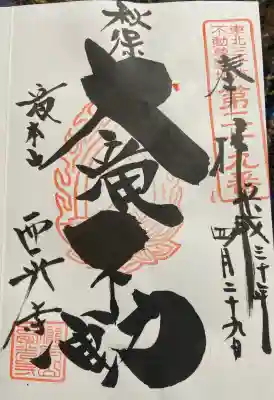 東北三十六
不動尊霊場
第二十九番
奉拝
平成三十年
四月二十九日
秋保
大滝不動
滝本山
西光寺